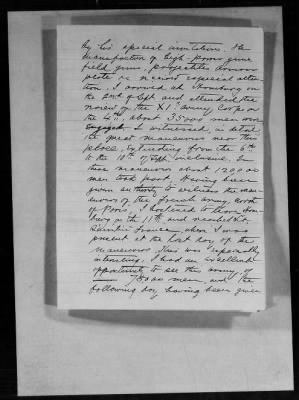 by his special invitation. The
manufacture of high power guns
field guns, projectiles armor
plate &c received especial atten-
tion. I arrived at Homburg on
the 2nd of Sept and attended the
review of the XI" Army Corps on
the 4th, about 35000 men were
engaged. I witnessed in detail
the great maneuvers near this
place, extending from the 6th
to the 10th of Sept inclusive. In
these maneuvers about 120000
men took part. Having been
given authority to witness the man-
euvers of the French army,
of Paris, I hastened to leave Hom-
burg on the 11th and reached St
Quentin France, where I was
present at the last day of the
maneuvers. This was especially
interesting. I had an excellent
opportunity to see this army of
men, and the
following day having been given